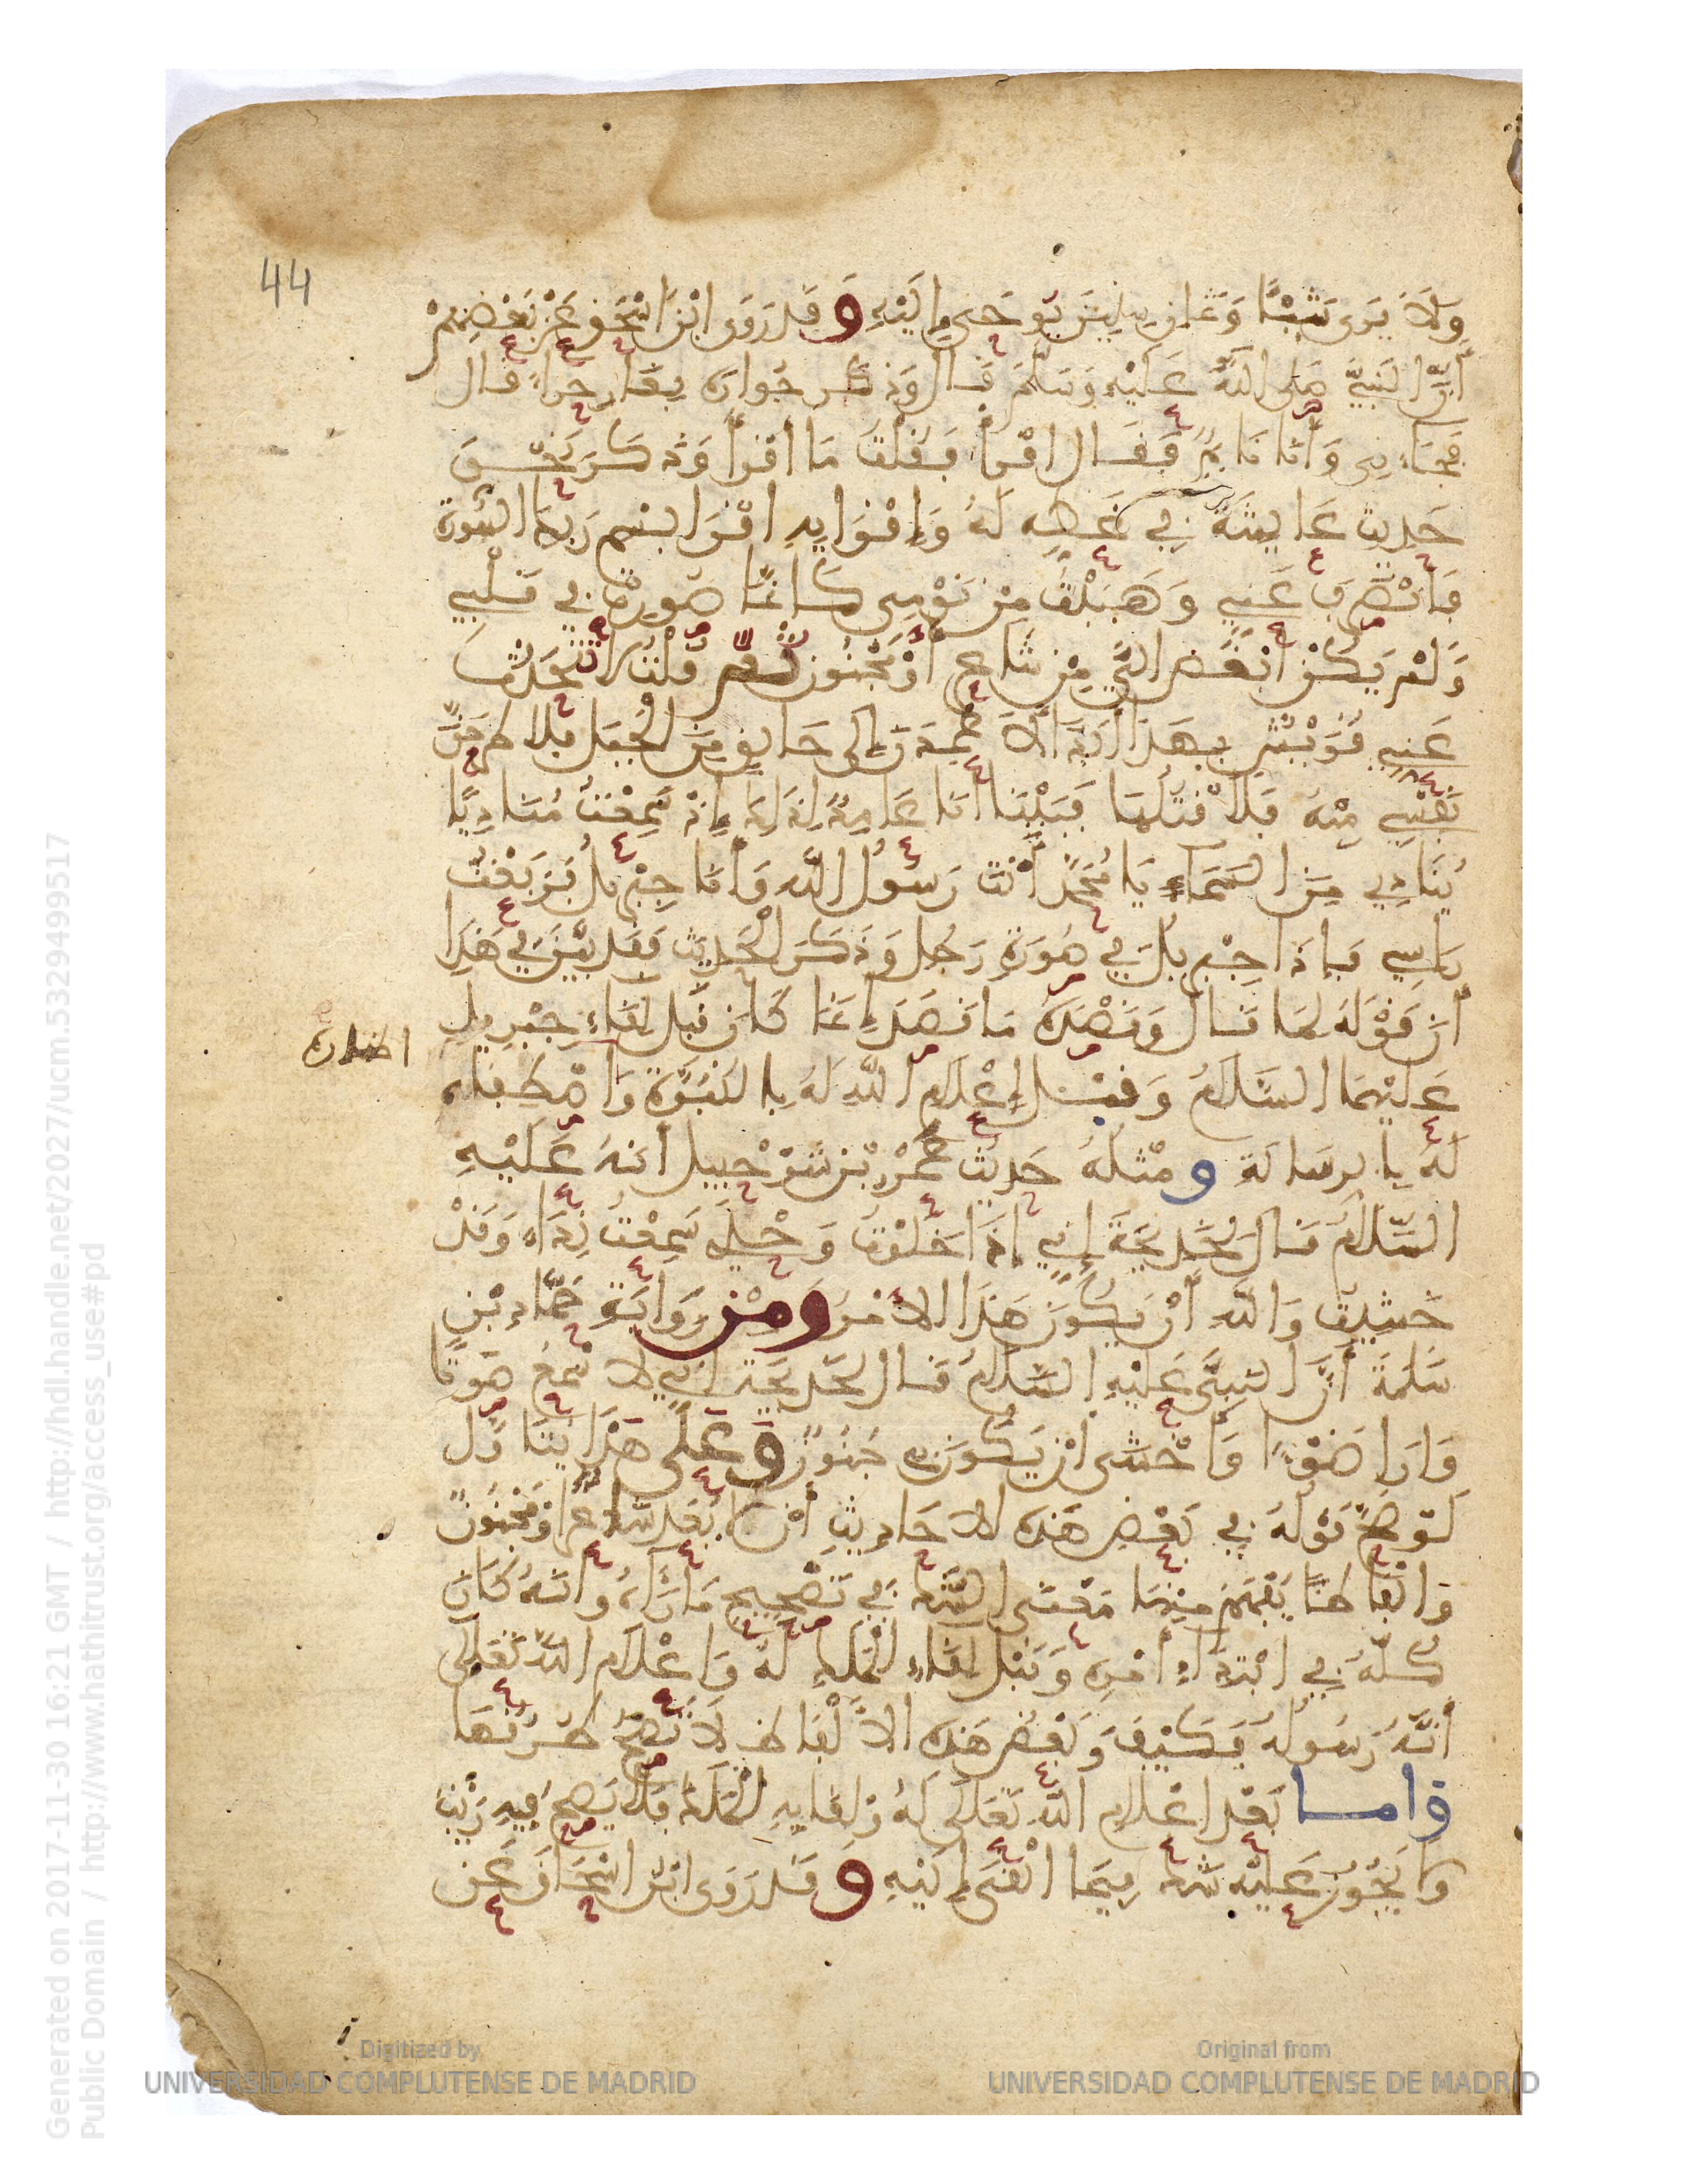 44
وَلَا يَرَى شَيْئًا وَثَمَانِ سِنِينَ يُوحَى إِلَيْهِ وَقَد رَوَى ابْنُ اسْحَقَ عَنْ بَعْضِهِمْ
أَنَّ النَّبِيَّ صَلَّى اللَّهُ عَلَيْهِ وَسَلَّمَ قَالَ وَذَكَرَ جِوَارَهُ بِغَارِ حِرَاءٍ قال
فَجَاءَنِي وَأَنَا نَائِمٌ فَقَالَ اقْرَأْ فَقُلْتُ مَا اقْرَأُ وَذَكَرَ نَحْوَ
حَدِيثِ عَائِشَةَ فِي غَطِّهِ لَهُ وَإِقْرَايِهِ اقْرَا بِسْمِ رَبِّكَ السُّورَةَ
فَانْصَرَفَ عَنِّي وَهَبَبْتُ مِنْ نَوْمِي كَأَنَّمَا صُوِّرَتْ فِي قَلْبِي
وَلَمْ يَكُنْ أَبْغَضَ الَيَّ مِنْ شَاعِرٍ أَوْ مَجْنُونٍ ثُمَّ قُلْتُ لَا تَحَدَّثُ
عَنِّي قُرَيْشٌ بِهَذَا أَبَدًا لَأَعْمِدَنَّ إِلَى حَالِقٍ مِنَ الْجَبَلِ فَلَاطْرَحَنَّ
نَفْسِي مِنْهُ فَلَأَقْتُلَنَّهَا فَبَيْنَا أَنَا عَامِدٌ لِذَلِكَ إِذْ سَمِعْتُ مُنَادِيًا
يُنَادِي مِنَ السَّمَاءِ يَا مُحَمَّدُ أَنْتَ رَسُولُ اللَّهِ وَأَنَا جِبْرِيلُ فَرَفَعْتُ
رَاسِي فَإِذَا جِبْرِيلُ فِي صُورَةِ رَجُلٍ وَذَكَرَ الْحَدِيثَ فَقَد بَيَّنَ فِي هَذَا
أَنَّ قَوْلَهُ لِمَا قَالَ وَقَصْدَهُ مَا قَصَدَ إِنَّمَا كَانَ قَبْلَ لِقَاءِ جِبْرِيلَ
عَلَيْهِمَا السَّلَامُ وَقَبْلَ إِعْلَامِ اللَّهِ لَهُ بِالنُّبُوَّةِ وَاصْطِفَايِهِ
لَهُ بِالرِّسَالَةِ وَمِثْلُهُ حَدِيثُ عَمْرِو بْنِ شُرَحْبِيلَ أَنَّهُ عَلَيْهِ
السَّلَامُ قَالَ لِخَدِيجَةَ إِنِّي إِذَا خَلَوْتُ وَحْدِي سَمِعْتُ نِدَاءً وَقَدْ
خَشِيتُ وَاللَّهِ أَنْ يَكُونَ هَذَا لِأَمْرٍ وَمِنْ رِوَايَةِ حَمَّادِ بْنِ
سَلَمَةَ أَنَّ النَّبِيَّ عَلَيْهِ السَّلَامُ قَالَ لِخَدِيجَةَ إِنِّي لَا سْمَعُ صَوْتًا
وَارَا ضَوْءًا وَأَخْشَى أَنْ يَكُونَ بِي جُنُونٌ وَعَلَى هَذَا يُتَأَوَّلُ
لَوْ صَحَّ قَوْلُهُ فِي بَعْضِ هَذِهِ الْأَحَادِيثِ أَنَّ الْأَبْعَدَ شَاعِرٌ أَوْ مَجْنُونٌ
وَأَلْفَاظًا يُفْهَمُ مِنْهَا مَعْنَى الشَّكِّ فِي تَصْحِيحِ مَا رَآهُ وَأَنَّهُ كَانَ
كُلُّهُ فِي ابْتِدَاءِ أَمْرِهِ وَقَبْلَ لِقَاءِ الْمَلَكِ لَهُ وَإِعْلَامِ اللَّهِ تَعَلَى
أَنَّهُ رَسُولُهُ فَكَيْفَ وَبَعْضُ هَذِهِ الْأَلْفَاظِ لَا تَصِحُّ طُرُقُهَا
وَأَمَّا بَعْدَ إِعْلَامِ اللَّهِ تَعَلَى لَهُ وَلِقَايِهِ الْمَلَكَ فَلَا يَصِحُّ فِيهِ رَيْبٌ
وَلَا يَجُوزُ عَلَيْهِ شَكٌّ فِيمَا أُلْقِيَ إِلَيْهِ وَقَد رَوَى ابْنُ اسْحَاقَ عَنْ
Generated on 2017-11-30 16:21 GMT / http://hdl.handle.net/2027/ucm.5329499517
Public Domain / http://www.hathitrust.org/access_use#pd
Digitized by
UNIVERSIDAD COMPLUTENSE DE MADRID
Original from
UNIVERSIDAD COMPLUTENSE DE MADRID